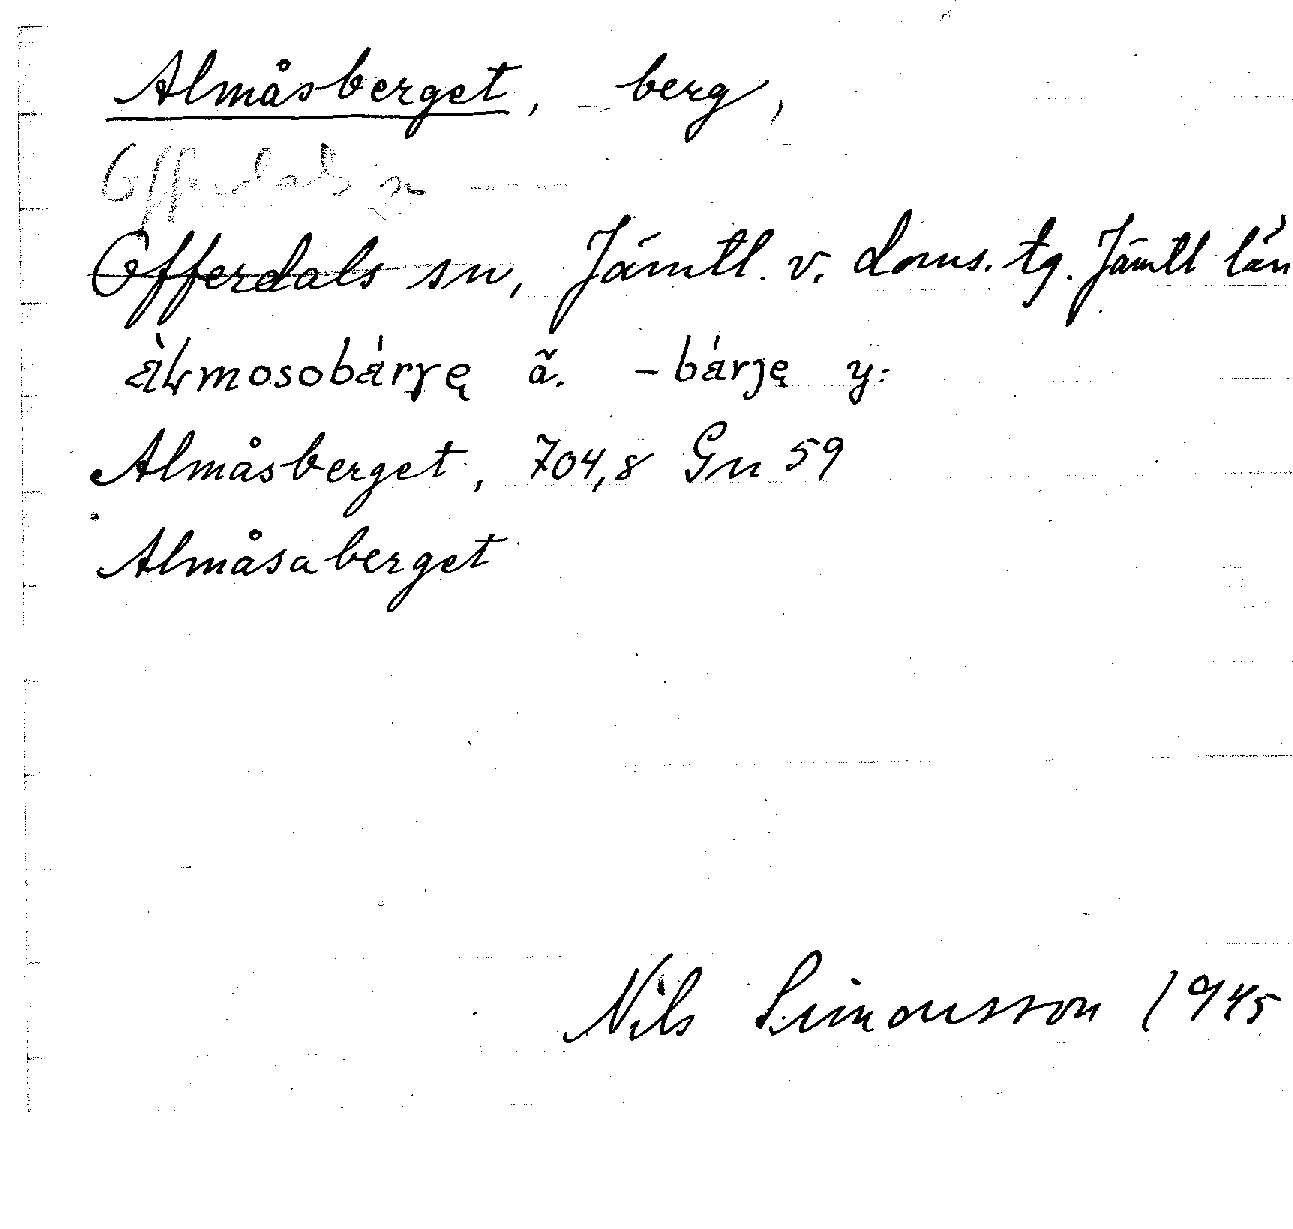 Almåsberget, berg,
Offerdals sn
Offerdals sn, Jämtl. v. doms. tg. Jämtl län
àḷmosobárɟę ä̃. -bárɟę y.
Almåsberget, 704,8 Gn 59
Almåsaberget
Nils Simonsson 1945